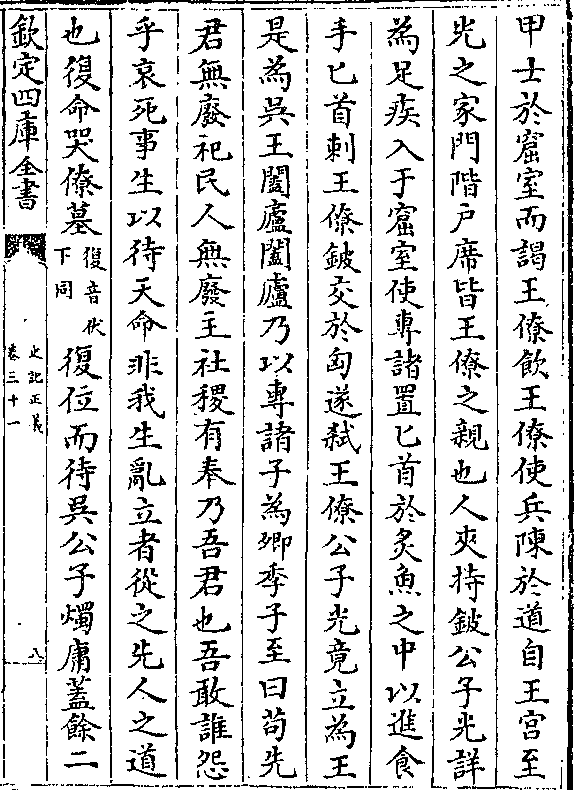 甲士於窟室而謁王僚飲王僚使兵陳於道自王宮至
光之家門階戶席皆王僚之親也人夾持鈹公子光詳
為足疾入于窟室使專諸置匕首於炙魚之中以進食
手匕首刺王僚鈹交於匈遂弑王僚公子光竟立為王
是為吳王闔廬闔廬乃以專諸子為卿季子至曰苟先
君無廢祀民人無廢主社稷有奉乃吾君也吾敢誰怨
乎哀死事生以待天命非我生亂立者從之先人之道
也復命哭僚墓復音伏下同復位而待吳公子燭庸蓋餘二
欽定四庫全書
史記正義
卷三十一
八